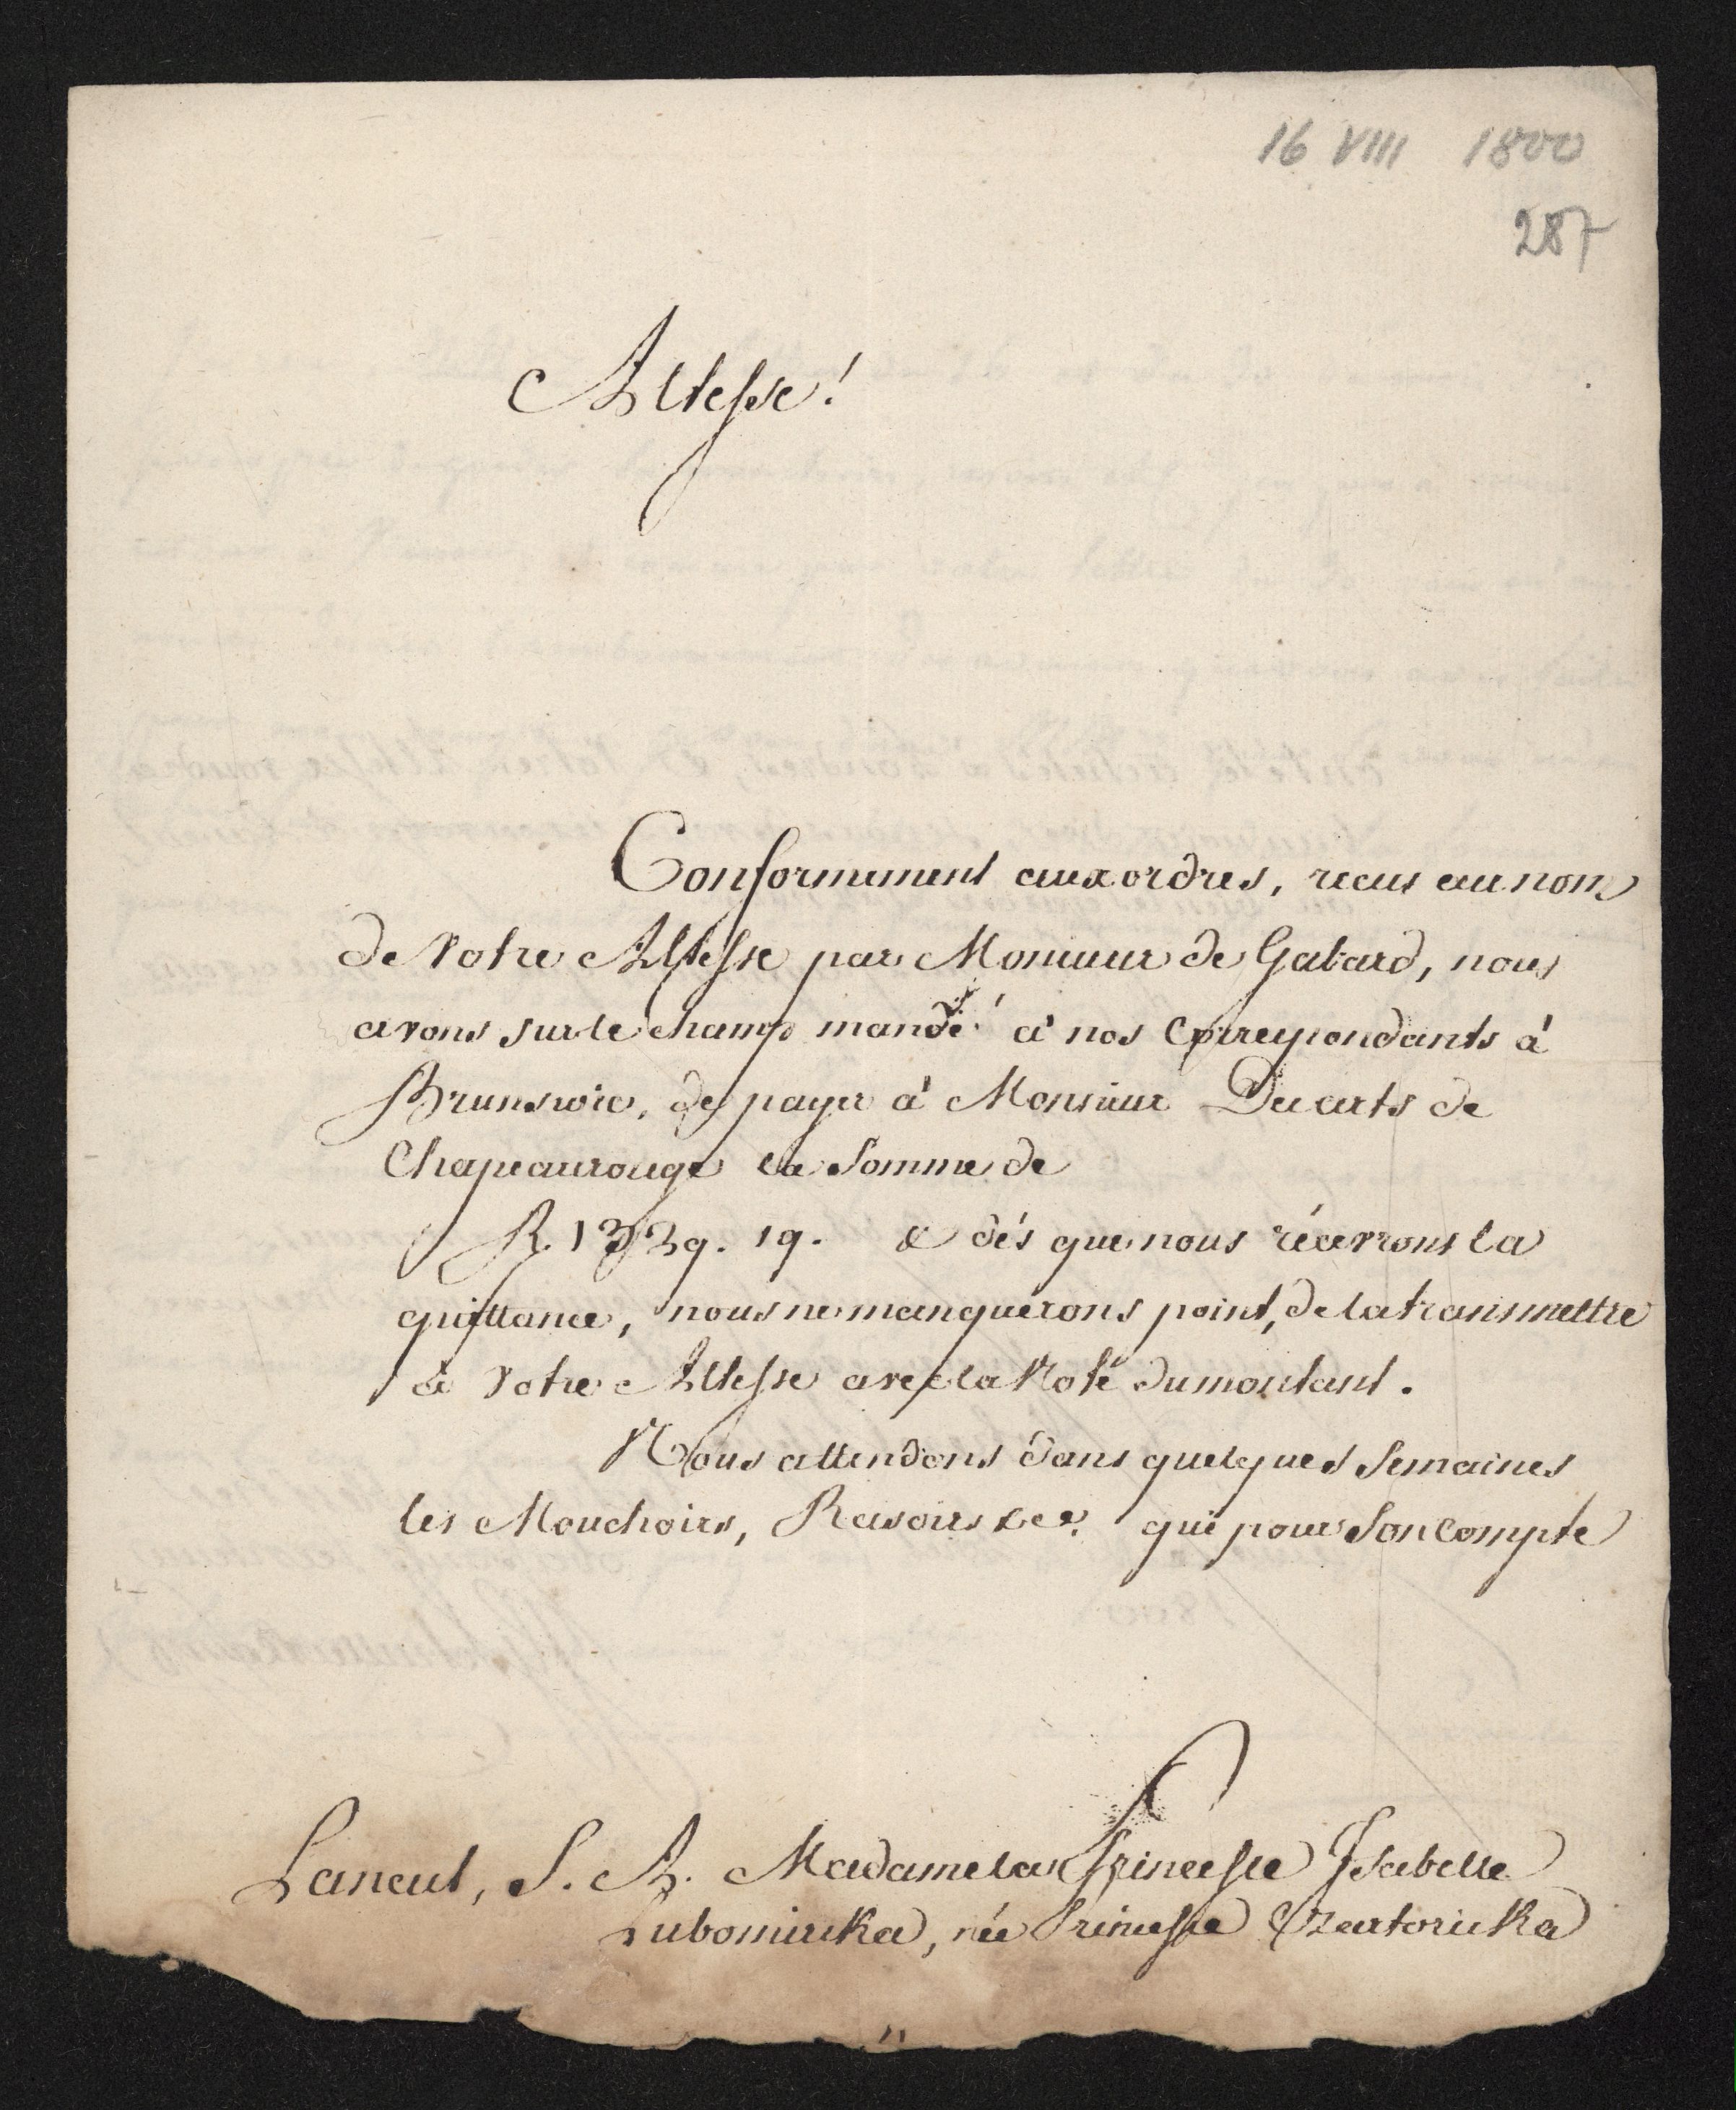 16 VIII 1800
287
Altesse!
Conformement aux ordres, recus au nom
de Votre Altesse par Monsieur de Gabard, nous
avons sur le champ mandé à nos Correspondants à
Brunswic, de payer à Monsieur Du arts de
Chapeaurouge la Somme de
R. 1339. 19. & dés que nous récevrons la
quittance, nous ne manquerons point, de la transmettre
à Votre Altesse avec la Note du montant.
Nous attendons dans quelques Semaines
les Mouchoirs, Rasoirs &c. qui pour Son Compte
Lancut, S. A. Madame la Princesse Isabelle
Lubomirska, née Princesse Czartoriska